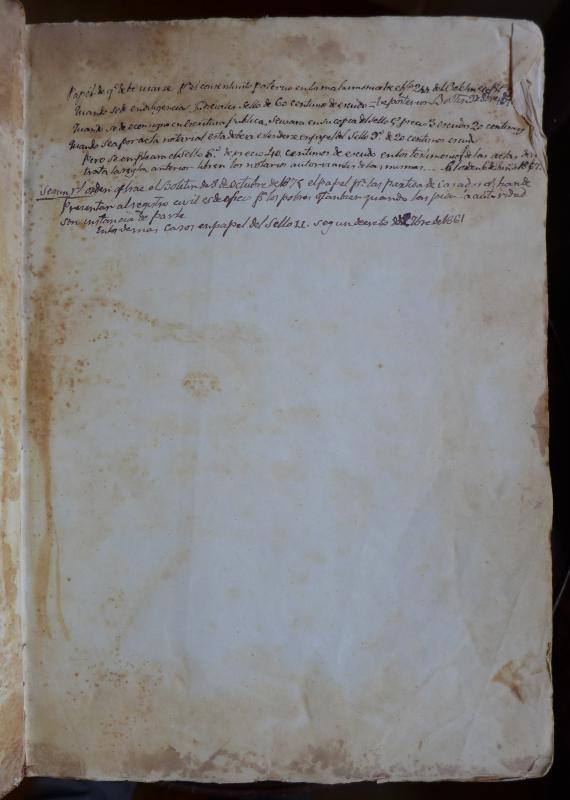 Papel de qe debe usarse pª el consentimto paterno en los matrimonios
Cuando se de en diligencia Judicial sello de 60 centimos de escudo
Cuando se de consigna en Escritura publica, se usara en su copia del sello 5º precio 3 escudos 20 centimos
Cuando sea por acta notarial esta debera estenderse en papel del sello 9º de 20 centimos escudo
Pero se empleara el sello 8º de precio 40 centimos de escudo en los testimonios de las actas
trata la regla anterior libren los notarios autorizantes de las mismas
Segun rl orden qe trae el Boletin de 8 de Octubre de 1875 el papel pª las partidas de casados qe han de
presentar al registro civil es de oficio pª los pobres y tambien cuando las pida la autoridad
son instancia de parte
En los demas casos en papel del Sello 11. segun decreto de 1861